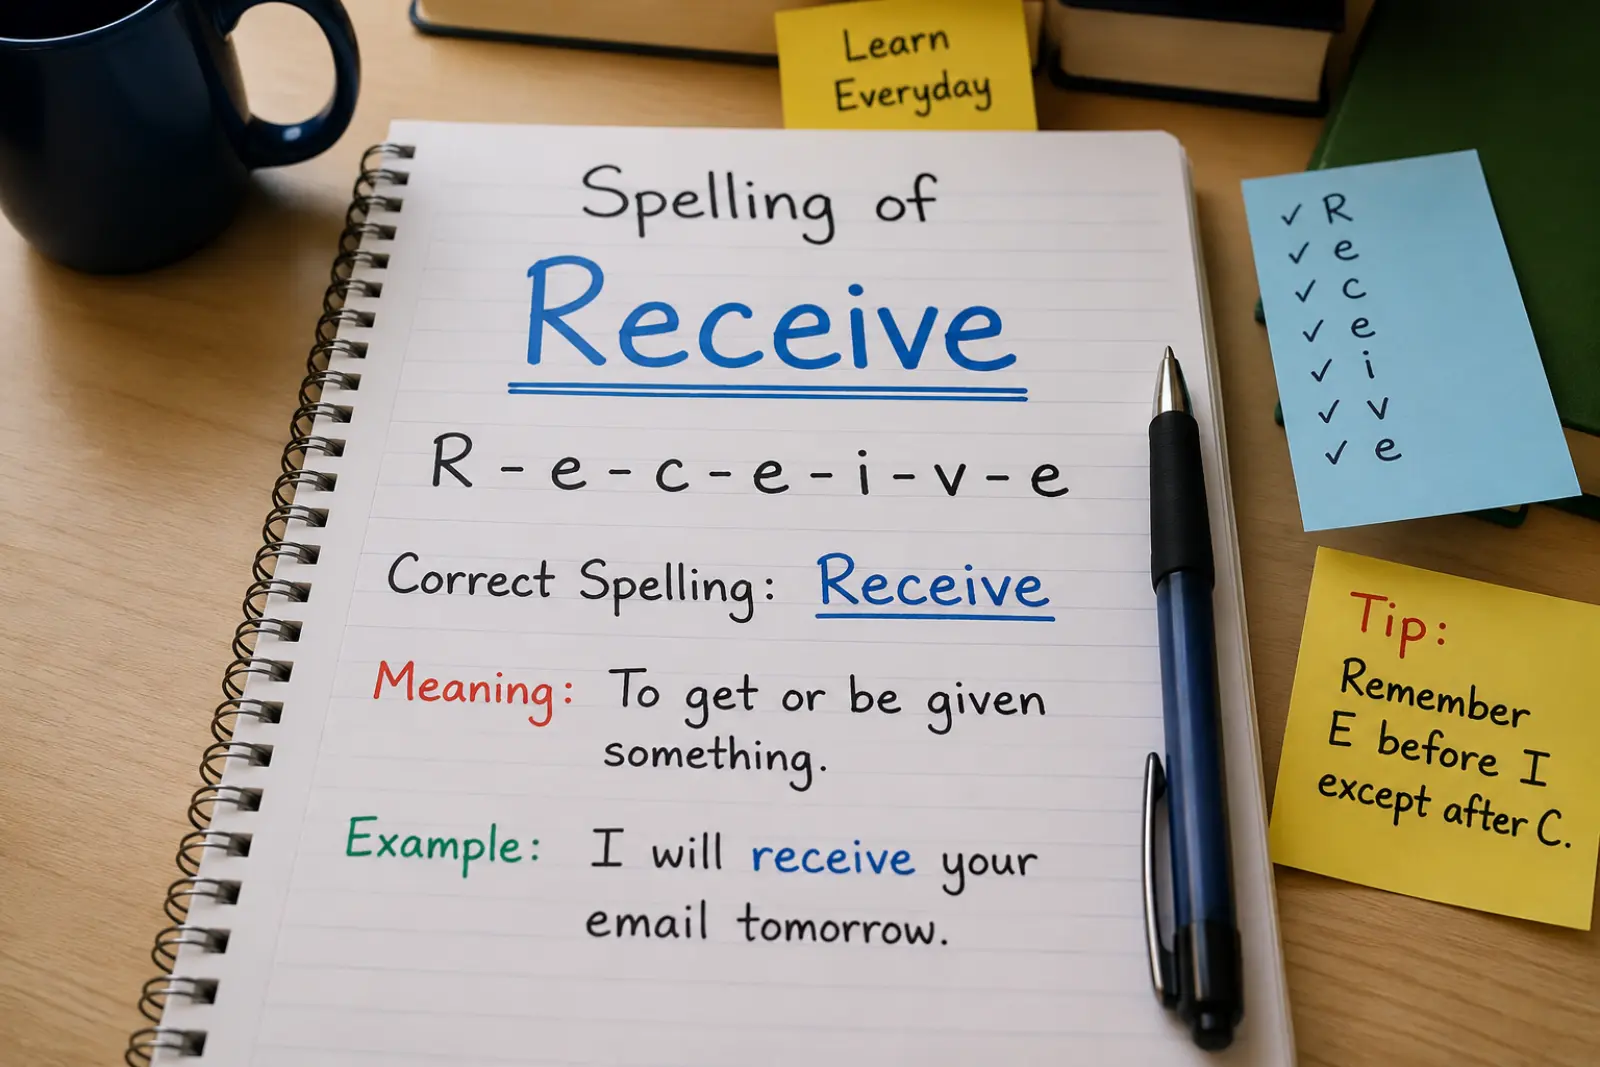 Learn
Everyday
Spelling of
Receive
R - e - c - e - i - v - e
Correct Spelling: Receive
Meaning: To get or be given
something.
Example: I will receive your
email tomorrow.
✓ R
✓ e
✓ c
✓ e
✓ i
✓ v
✓ e
Tip:
Remember
E before I
except after C.